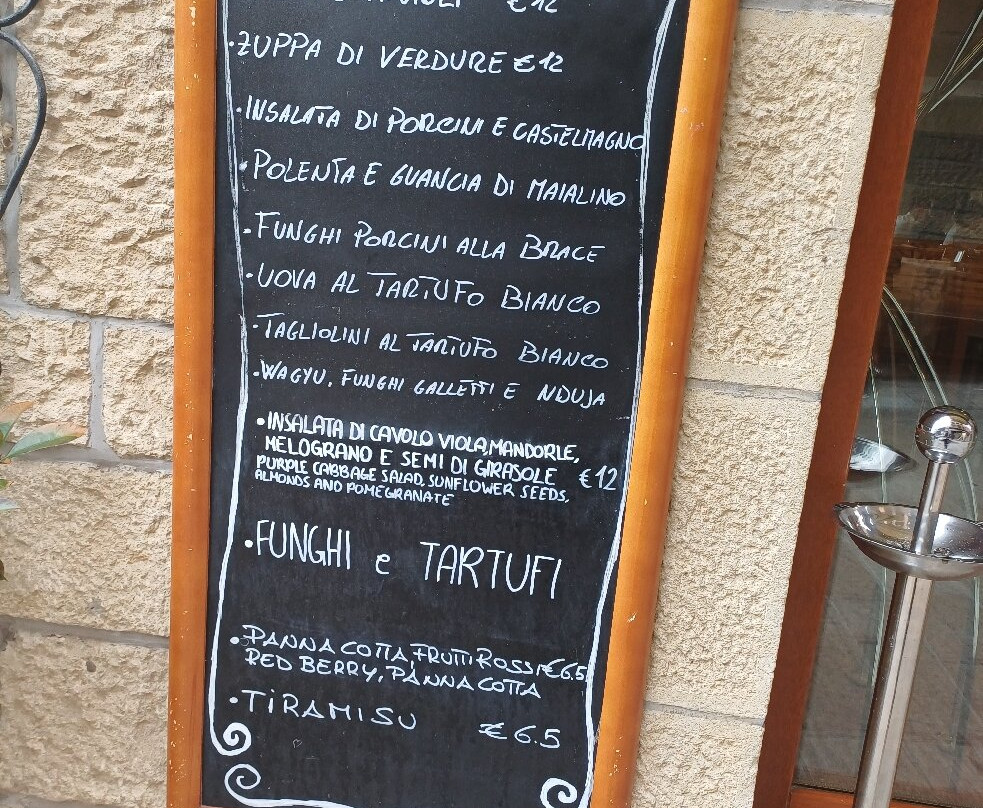 €12
·ZUPPA DI VERDURE €12
·INSALATA DI PORCINI E CASTELMAGNO
·POLENTA E GUANCIA DI MAIALINO
·FUNGHI PORCINI ALLA BRACE
·UOVA AL TARTUFO BIANCO
·TAGLIOLINI AL TARTUFO BIANCO
·WAGYU, FUNGHI GALLETTI E NDUJA
·INSALATA DI CAVOLO VIOLA,MANDORLE,
MELOGRANO E SEMI DI GIRASOLE €12
PURPLE CABBAGE SALAD, SUNFLOWER SEEDS,
ALMONDS AND POMEGRANATE
·FUNGHI e TARTUFI
·PANNA COTTA,FRUTTI ROSSI €6.5
RED BERRY, PANNA COTTA
·TIRAMISU €6.5